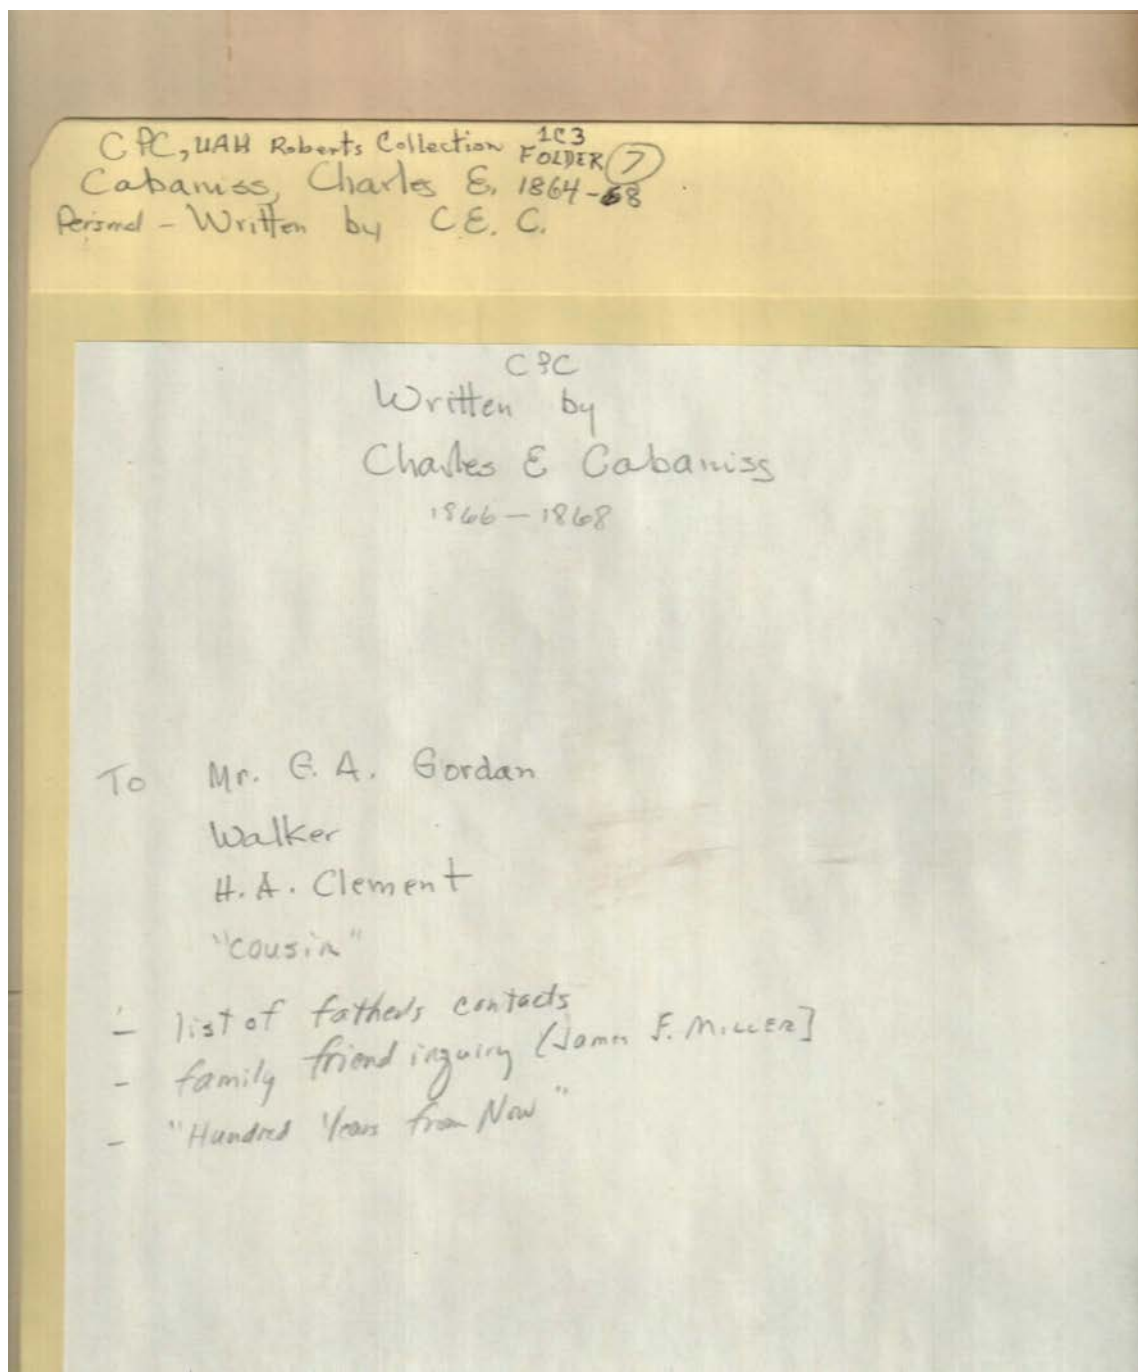 CPC, UAH Roberts Collection 1C3 FOLDER 7
Cabaniss, Charles E. 1864-68
Personal - Written by C.E.C.
CPC
Written by
Charles E Cabaniss
1866-1868
To Mr. G. A. Gordan
Walker
H. A. Clement
"cousin"
- list of father's contacts
- family friend inquiry (James F. MILLER]
- "Hundred Years from Now"